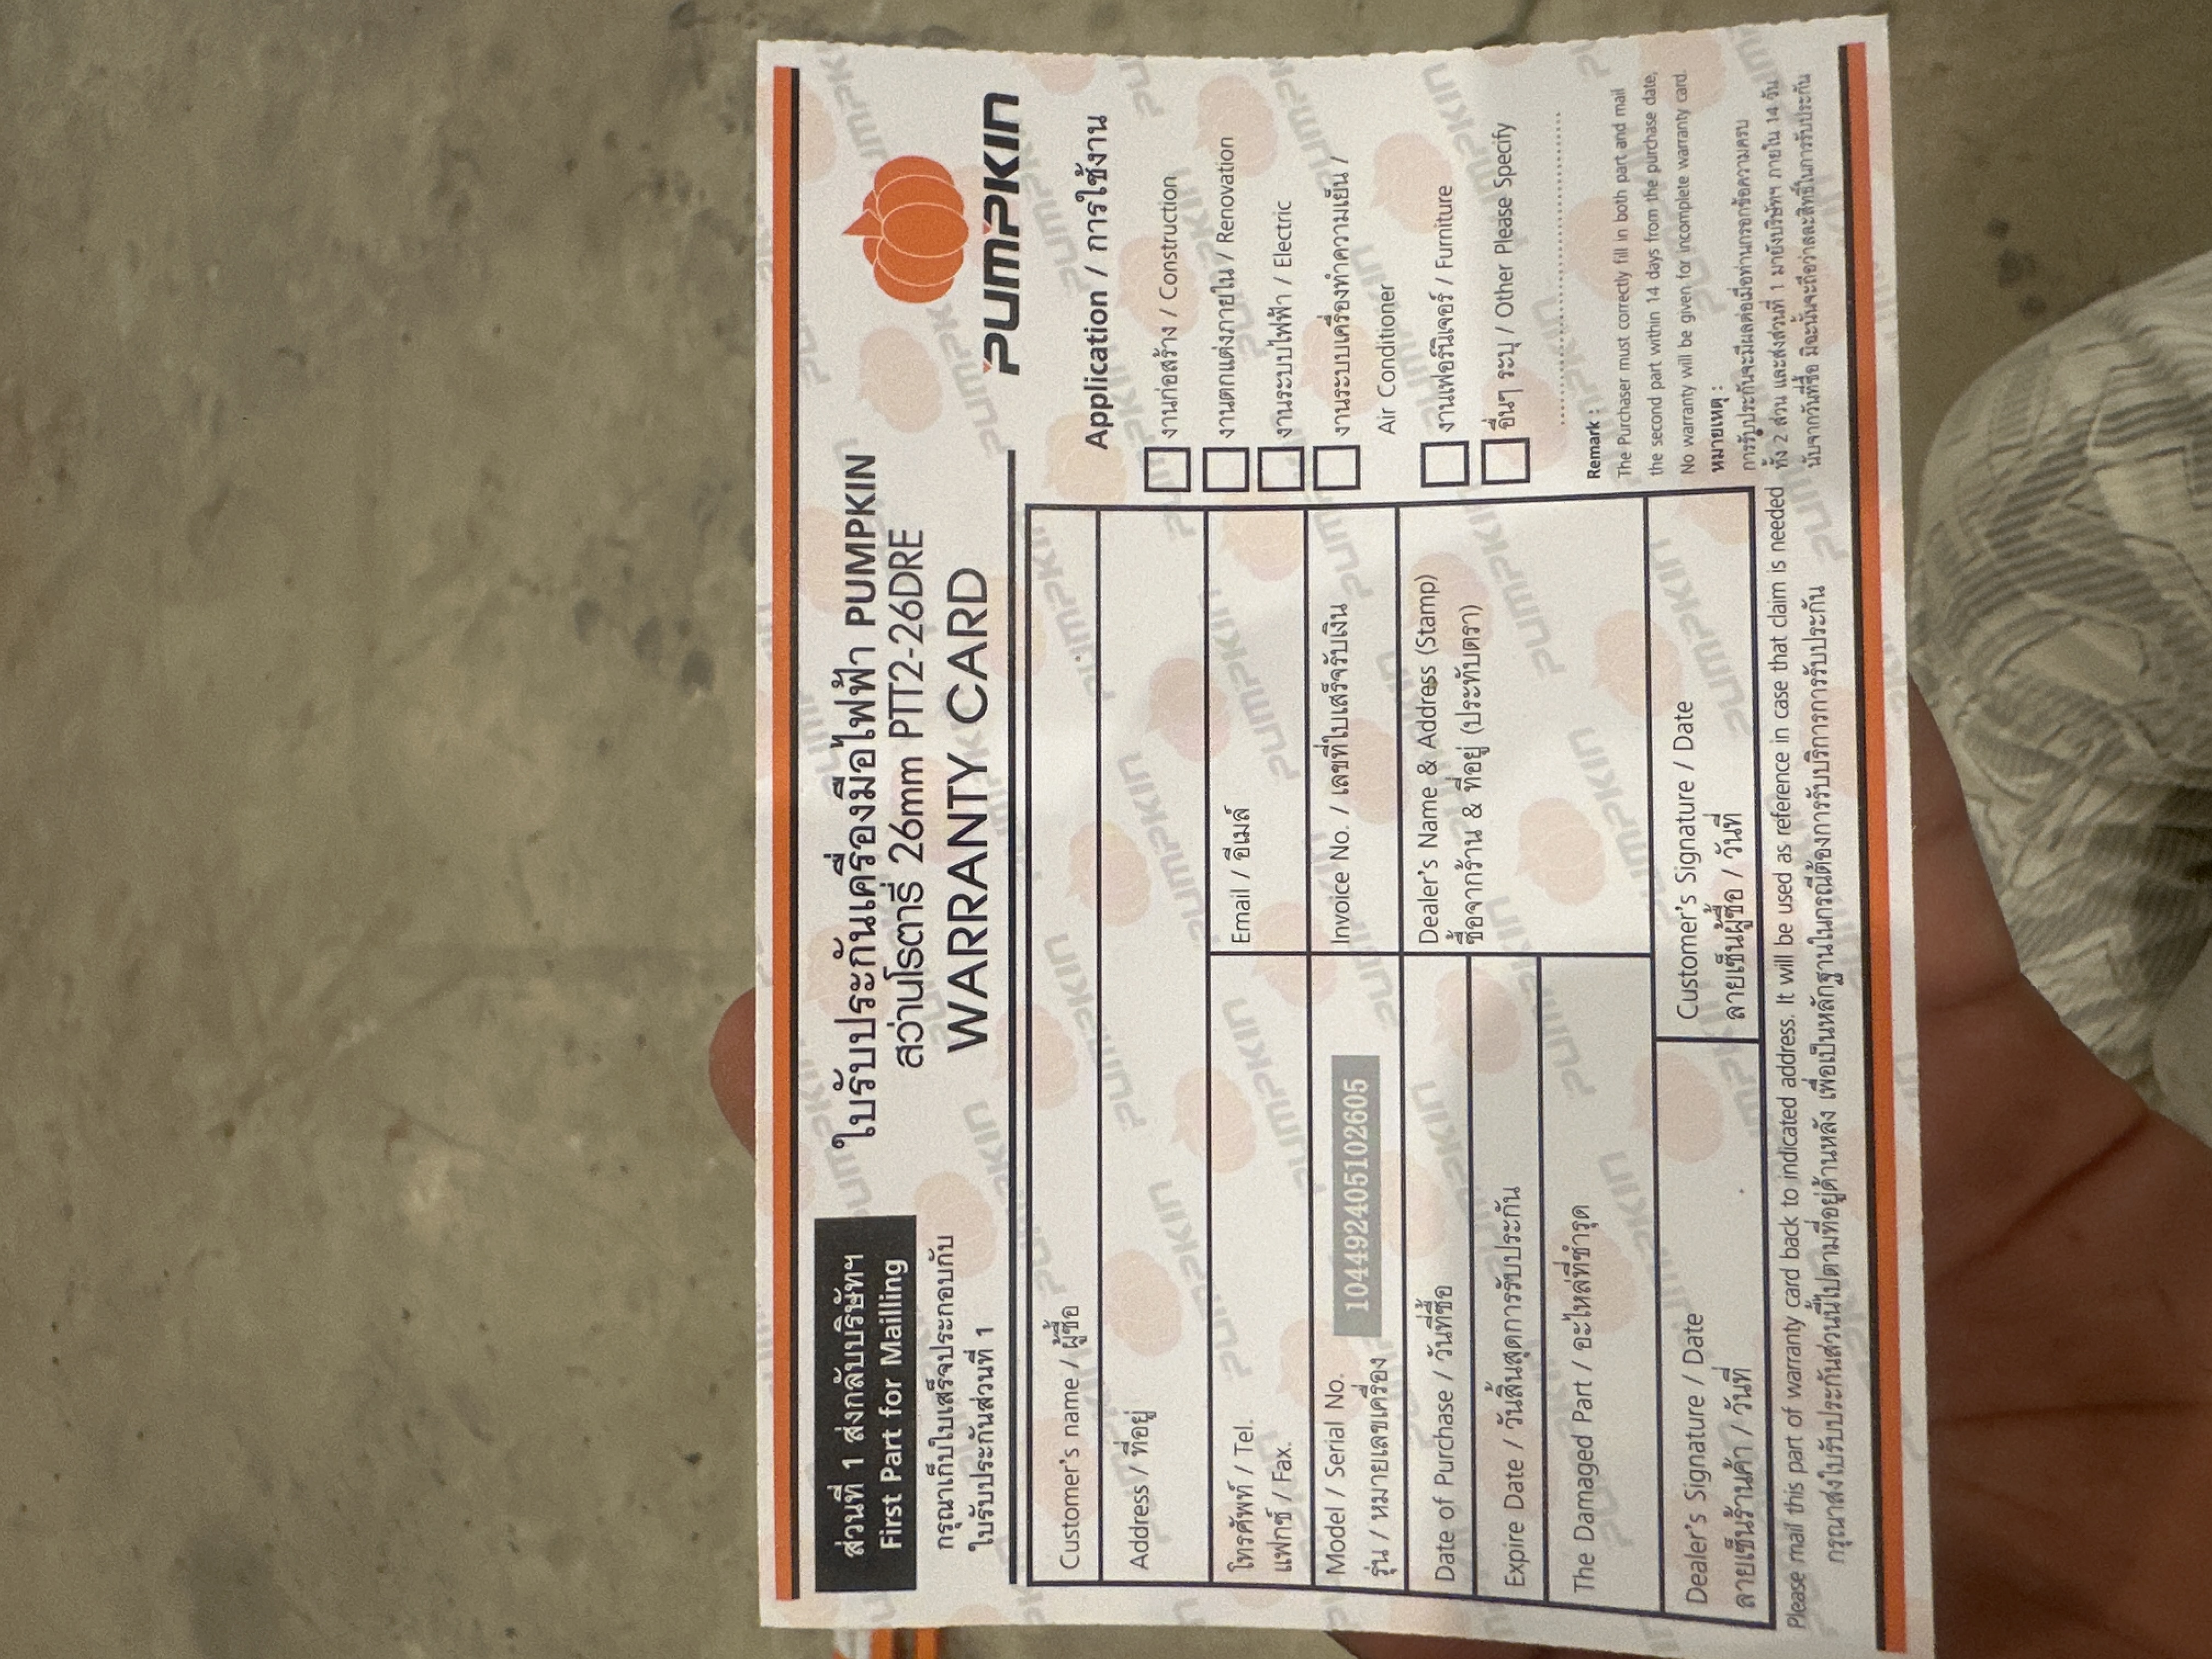 ส่วนที่ 1 ส่งกลับบริษัทฯ
First Part for Mailling
กรุณาเก็บใบเสร็จประกอบกับ
ใบรับประกันส่วนที่ 1
ใบรับประกันเครื่องมือไฟฟ้า PUMPKIN
สว่านโรตารี่ 26mm PTT2-26DRE
WARRANTY CARD
PUMPKIN
Customer's name / ผู้ซื้อ
Address / ที่อยู่
โทรศัพท์ / Tel.
แฟกซ์ / Fax.
Email / อีเมล์
Model / Serial No.
รุ่น / หมายเลขเครื่อง
104492405102605
Invoice No. / เลขที่ใบเสร็จรับเงิน
Date of Purchase / วันที่ซื้อ
Expire Date / วันสิ้นสุดการรับประกัน
The Damaged Part / อะไหล่ที่ชำรุด
Dealer's Name & Address (Stamp)
ซื้อจากร้าน & ที่อยู่ (ประทับตรา)
Dealer's Signature / Date
ลายเซ็นร้านค้า / วันที่
Customer's Signature / Date
ลายเซ็นผู้ซื้อ / วันที่
Application / การใช้งาน
งานก่อสร้าง / Construction
งานตกแต่งภายใน / Renovation
งานระบบไฟฟ้า / Electric
งานระบบเครื่องทำความเย็น /
Air Conditioner
งานเฟอร์นิเจอร์ / Furniture
อื่นๆ ระบุ / Other Please Specify
Remark :
The Purchaser must correctly fill in both part and mail
the second part within 14 days from the purchase date,
No warranty will be given for incomplete warranty card.
หมายเหตุ :
การรับประกันจะมีผลต่อเมื่อท่านกรอกข้อความครบ
ทั้ง 2 ส่วน และส่งส่วนที่ 1 มายังบริษัทฯ ภายใน 14 วัน
นับจากวันที่ซื้อ มิฉะนั้นจะถือว่าสละสิทธิ์ในการรับประกัน
Please mail this part of warranty card back to indicated address. It will be used as reference in case that claim is needed
กรุณาส่งใบรับประกันส่วนนี้ไปตามที่อยู่ด้านหลัง เพื่อเป็นหลักฐานในกรณีต้องการรับบริการการรับประกัน